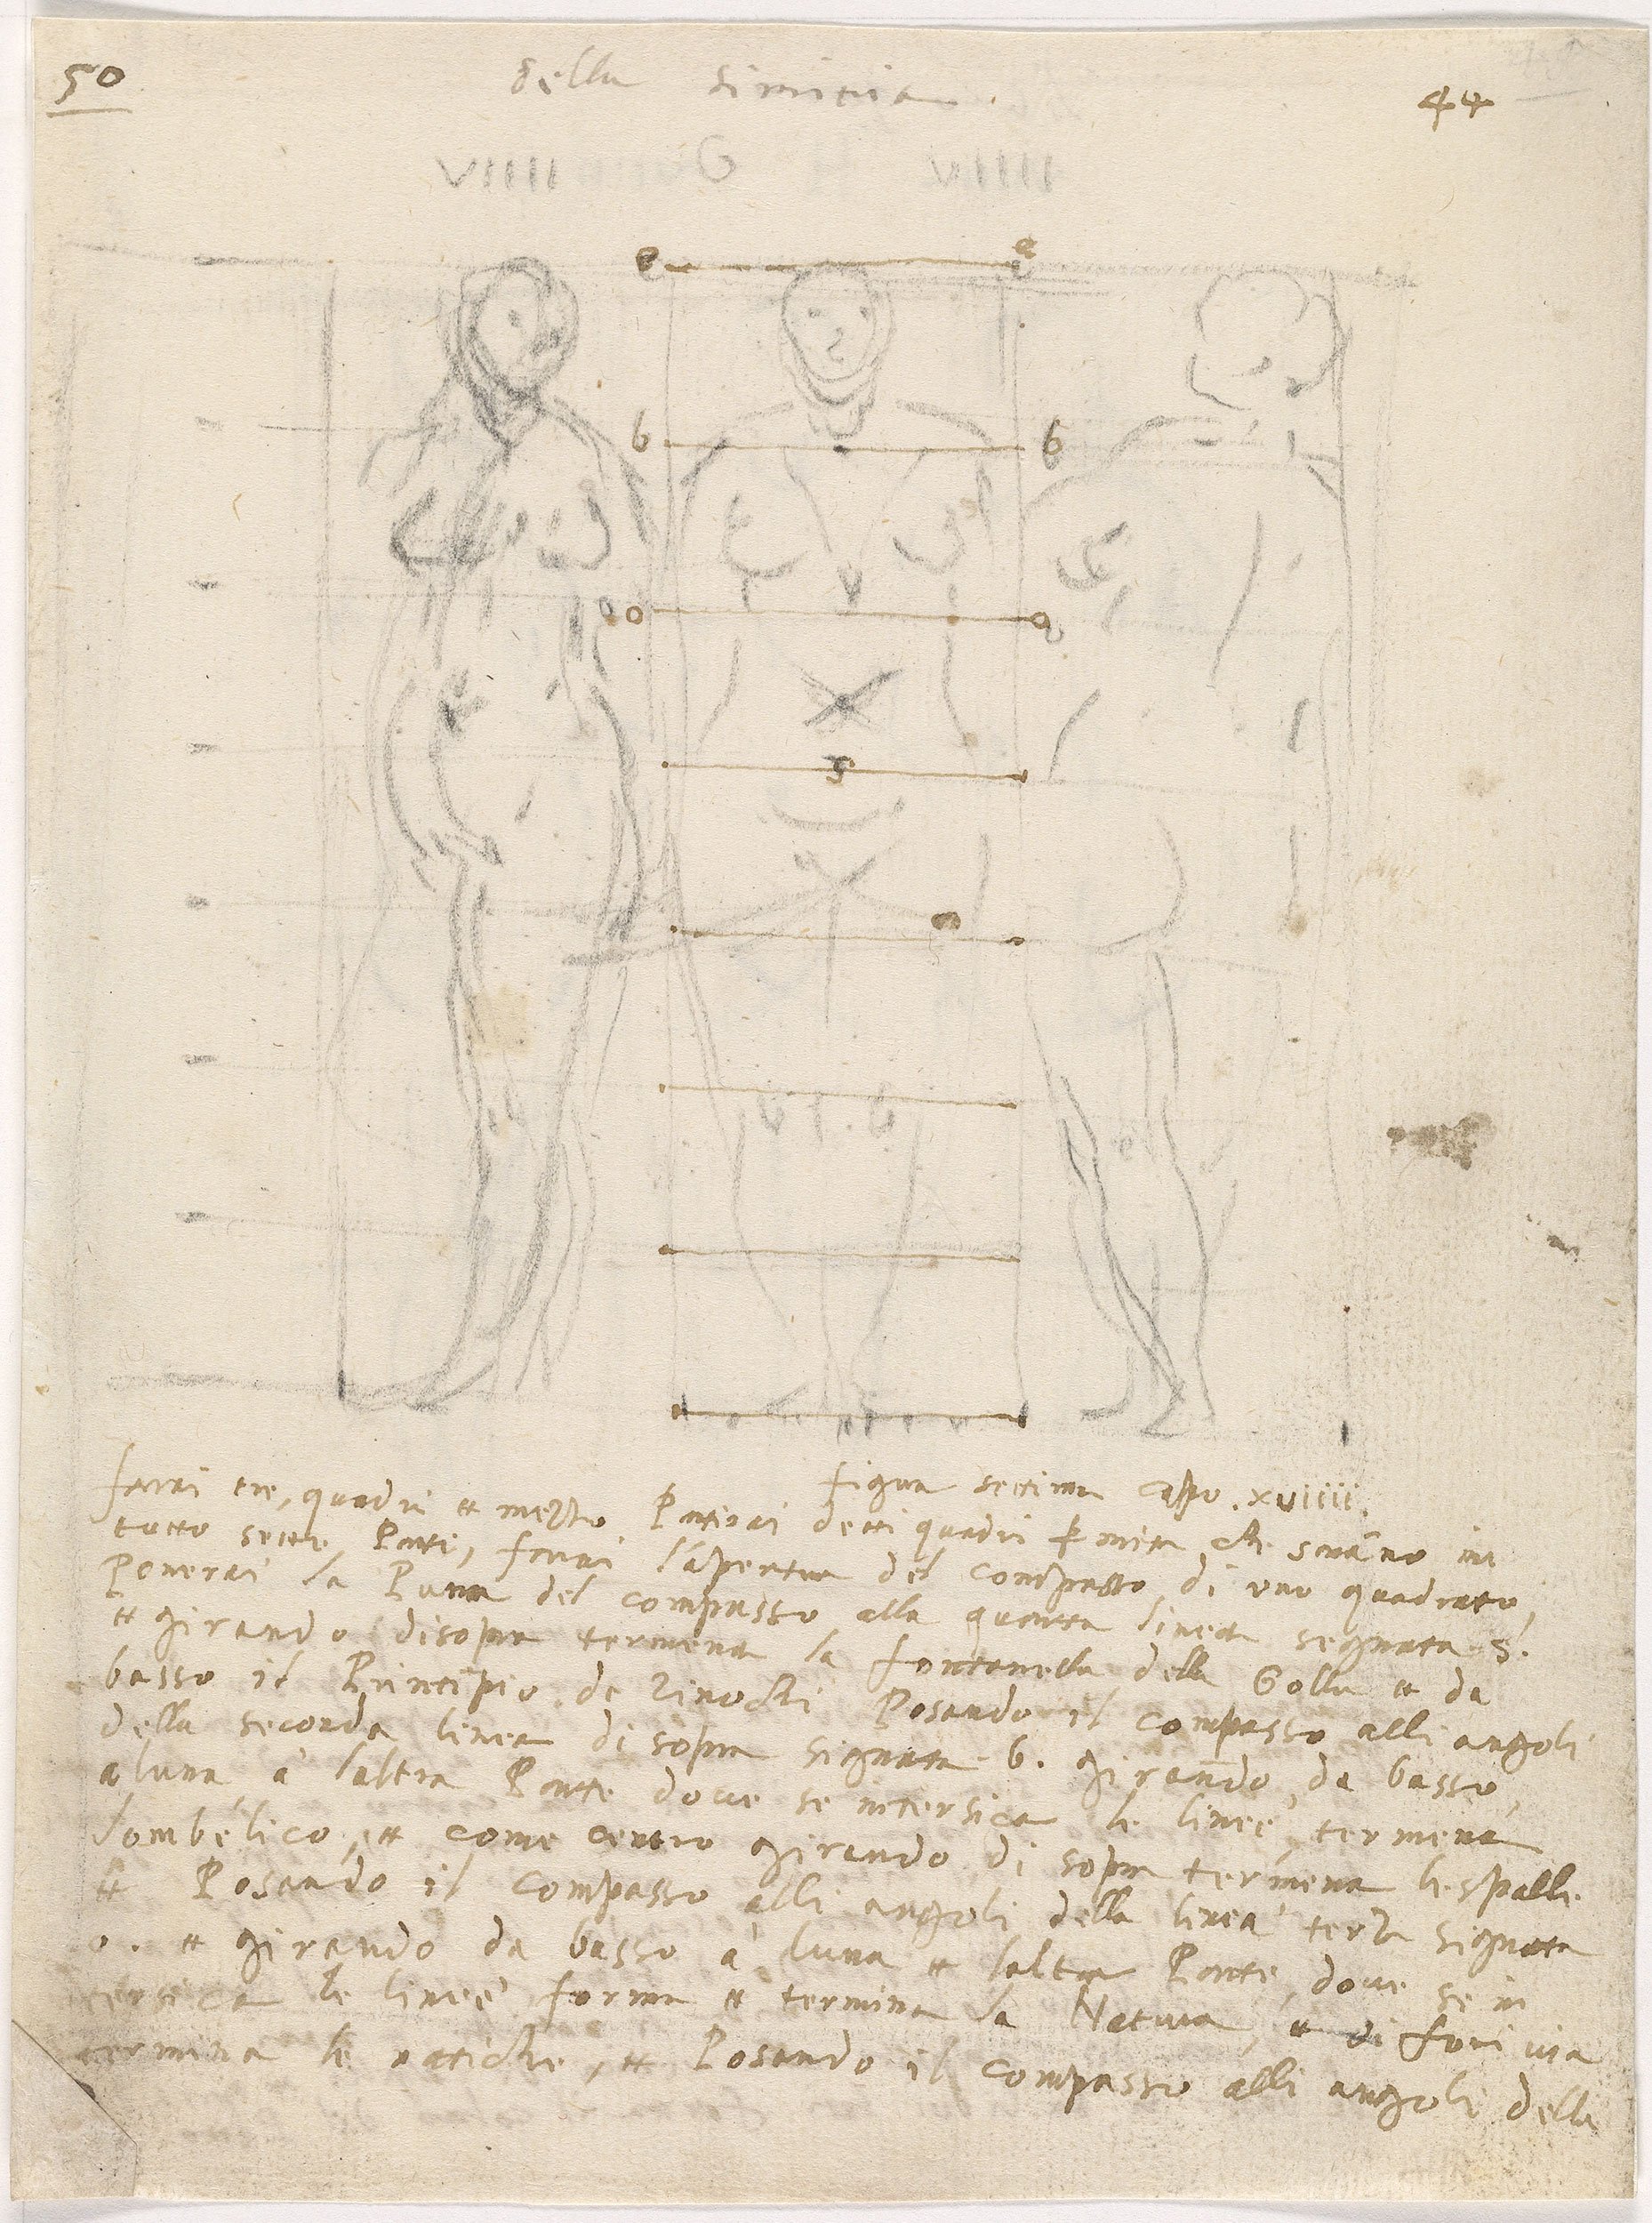 50
della simitria
44
VIIII G VIIII
e e
b b
o o
5
figura settima capo. xviiii.
farai tre, quadri et mezzo Partirai detti quadri per mita che sarano in
tutto sette Parti, farai l'apertura del compasso di uno quadrato,
Ponerai la Punta del compasso alla quarta linea segnata 5.
et girando disopra termena la fontanella della Golla et da
basso il Principio de zinochi Posando il compasso alli angoli
della seconda linea di sopra signata b. girando da basso,
a luna à laltra Parte doue se intersica le linee, termena
lombelico, et come centro girando di sopra termena le spalle
et Posando il compasso alli angoli della linea terza signata
o. et girando da basso à luna et laltra Parte, doue se in
tersica le linee forma et termina la Natura, et di fori via
termina le natiche, et Posando il compasso alli angoli della